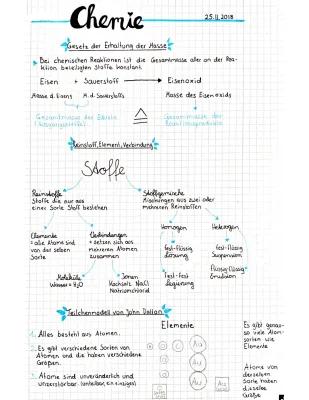 Chemie
25.11.2018
Gesetz der Erhaltung der Masse
Bei chemischen Reaktionen ist die Gesamtmasse aller an der Reaktion beteiligten Stoffe konstant.
Eisen + Sauerstoff → Eisenoxid
Masse d. Eisens M. d. Sauerstoffs Masse des Eisenoxids
Gesamtmasse der Edukte (Ausgangsstoffe) ≙ Gesamtmasse der Reaktionsprodukte
Reinstoff, Element, Verbindung
Stoffe
Reinstoffe
Stoffe die nur aus
einer Sorte Stoff bestehen
Stoffgemische
Mischungen aus zwei oder
mehreren Reinstoffen
Elemente
= alle Atome sind
von der selben
Sorte
Verbindungen
= setzen sich aus
mehreren Atomen
zusammen
Homogen
Heterogen
fest-flüssig
Lösung
fest-flüssig
Suspension
Moleküle
Wasser = H₂O
Ionen
Kochsalz NaCl
Natriumchlorid
fest-fest
Legierung
flüssig-flüssig
Emulsion
Teilchenmodell von John Dalton
1. Alles besteht aus Atomen.
2. Es gibt verschiedene Sorten von
Atomen und die haben verschiedene
Größen.
3. Atome sind unveränderlich und
unzerstörbar.
Elemente
Au
Au
Au
Au
Es gibt genauso
viele Atomsorten
wie
Elemente
Atome von
derselben
Sorte haben
dieselbe